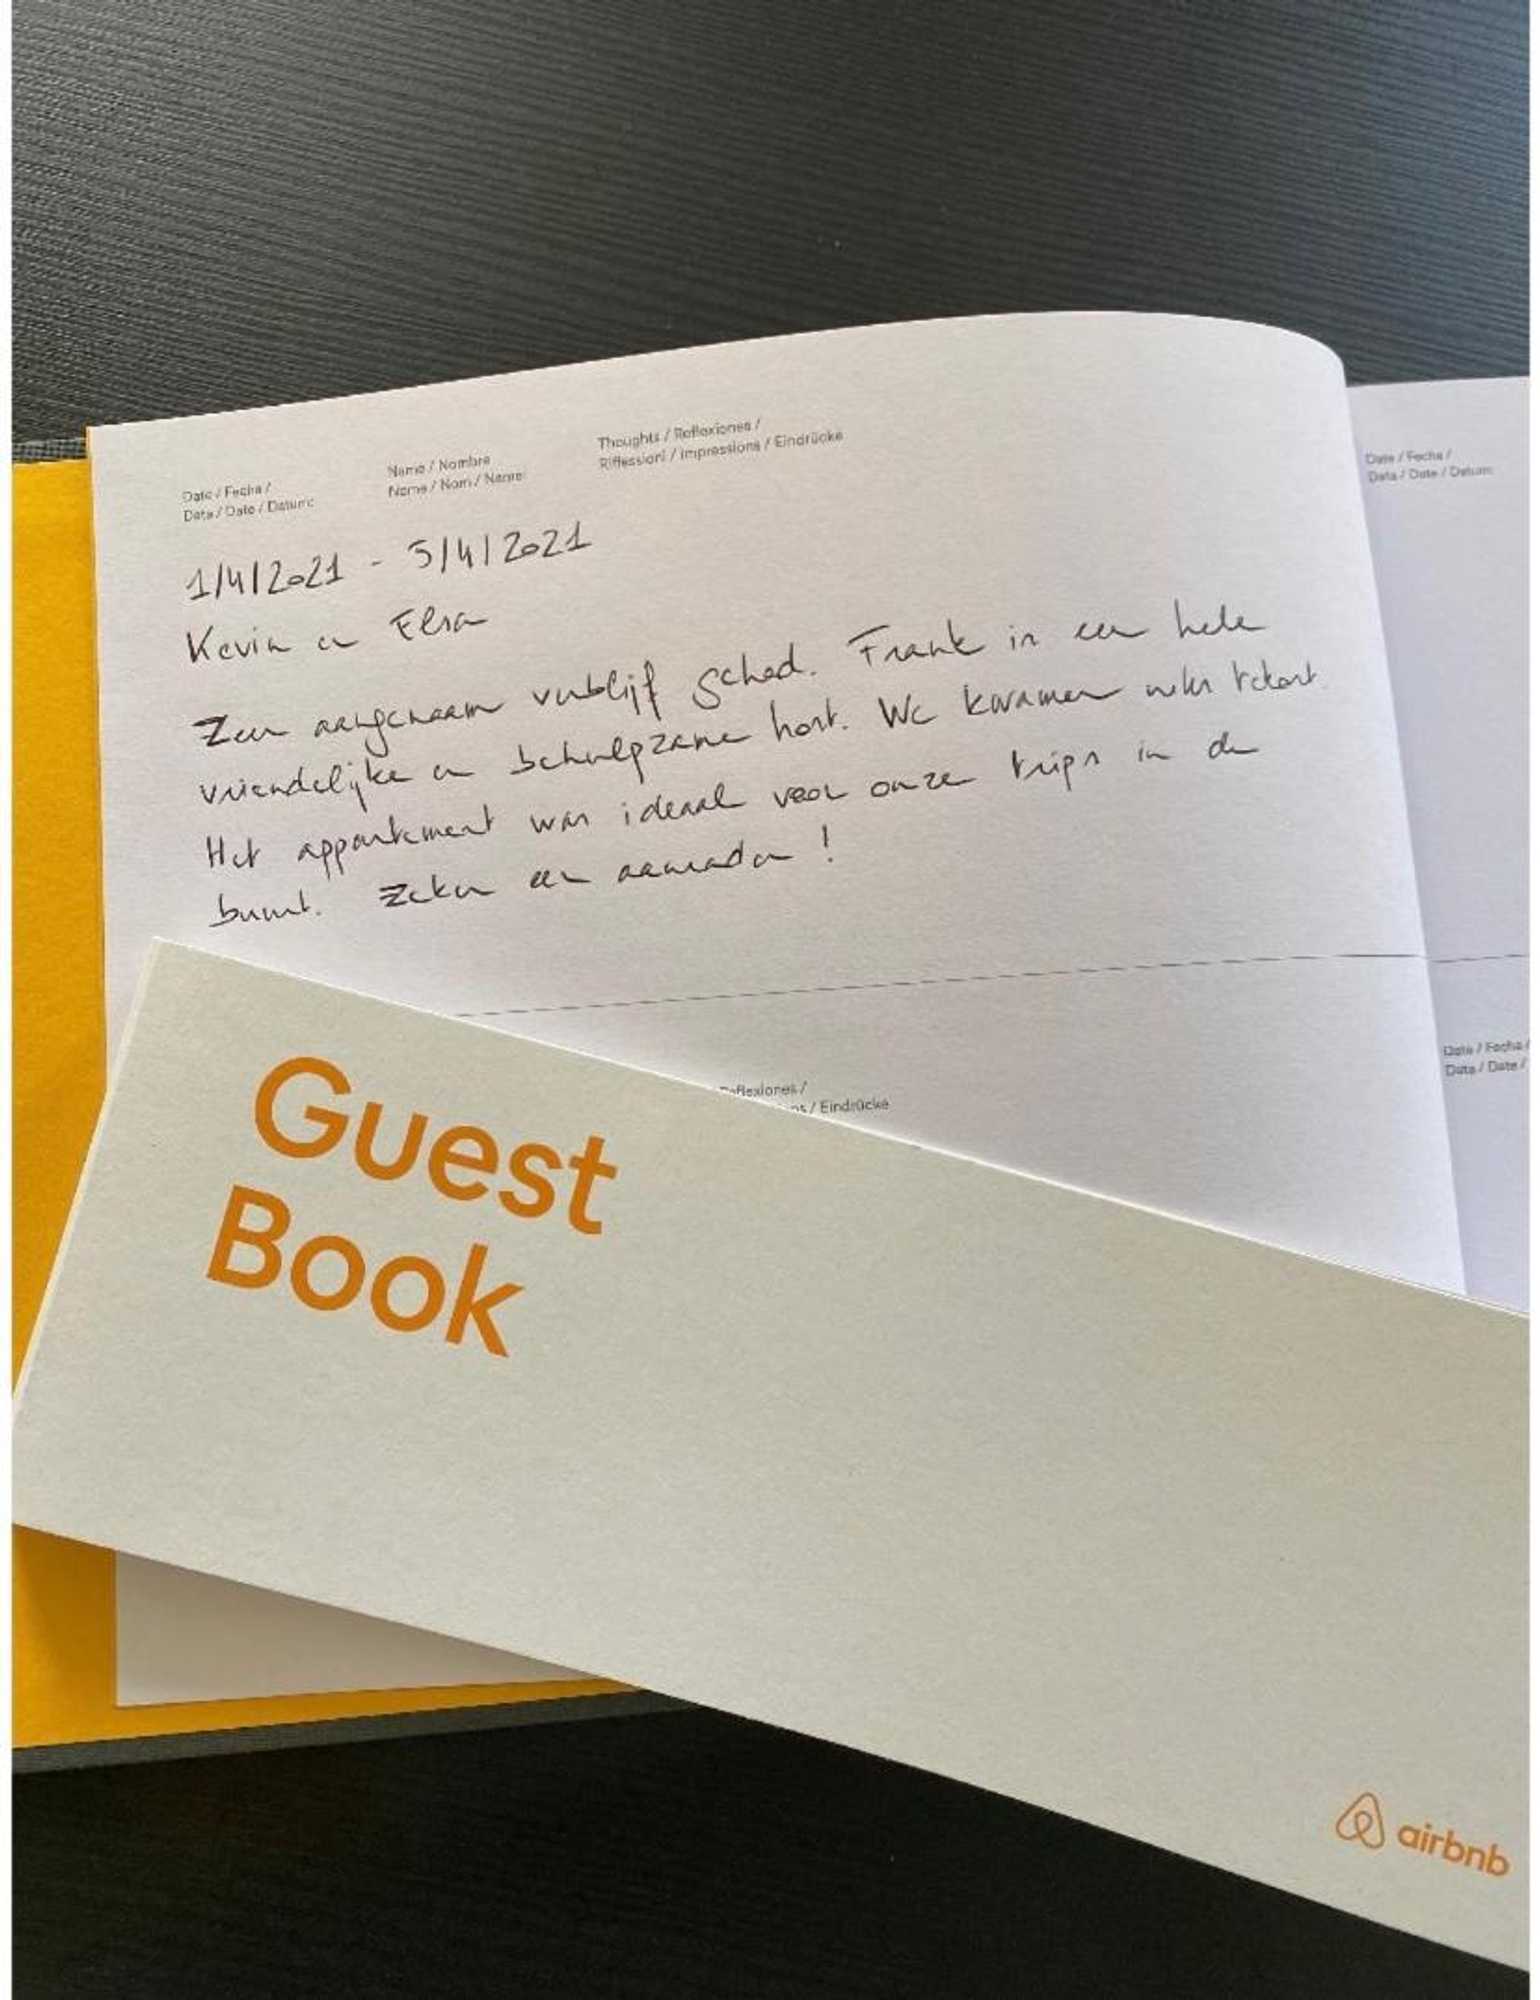 Thoughts / Reflexiones /
Riflessioni / Impressions / Eindrücke
Name / Nombre
Nome / Nom / Name:
Date / Fecha /
Data / Date / Datum:
1/4/2021 - 5/4/2021
Kevin en Elsa
Zeer aangenaam verblijf gehad. Frank is een hele
vriendelijke en behulpzame host. We kwamen niks tekort.
Het appartement was ideaal voor onze trips in de
buurt. Zeker een aanrader !
Date / Fecha /
Data / Date / Datum:
Reflexiones /
/ Eindrücke
Date / Fecha /
Data / Date /
Guest
Book
airbnb